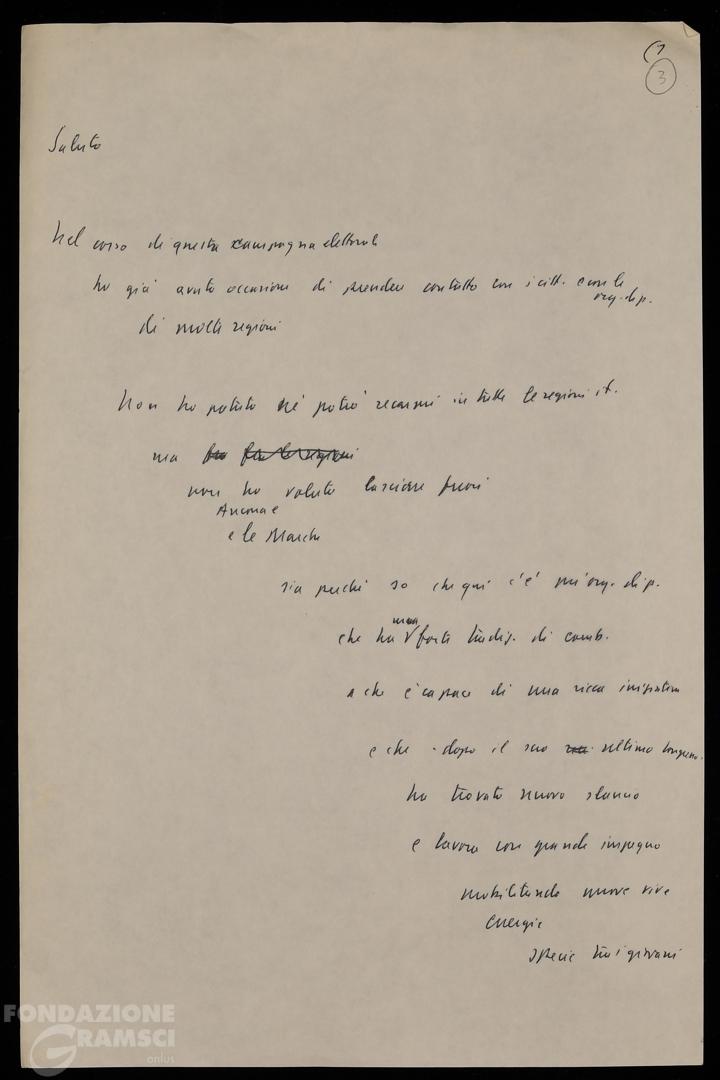 3
Saluto
Nel corso di questa campagna elettorale
ho già avuto occasione di prendere contatto con i citt. e con le
org. di p.
di molte regioni
Non ho potuto né potrò recarmi in tutte le regioni it.
ma
non ho voluto lasciare fuori
Ancona e
e le Marche
sia perché so che qui c'è un'org. di p.
che ha una forte tradiz. di comb.
e che è capace di una ricca iniziativa
e che - dopo il suo ultimo congresso -
ha trovato nuovo slancio
e lavora con grande impegno
mobilitando nuove vive
energie
specie tra i giovani
FONDAZIONE
GRAMSCI
onlus